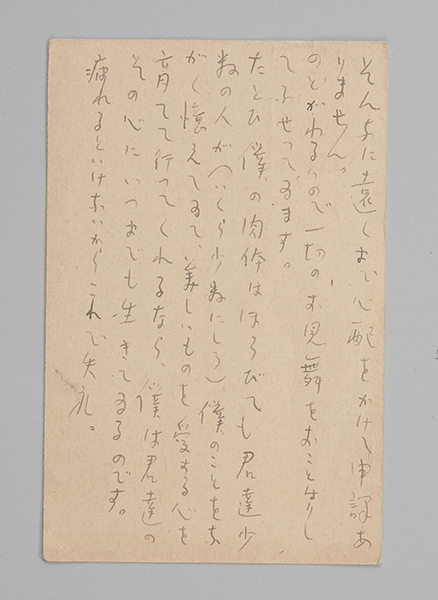 そんなに遠くまで心配をかけて申訳あ
りません。
のどがわるいので一切のお見舞をおことはりし
てふせってゐます。
たとひ僕の肉体はほろびても君達少
数の人が(いくら少数にしろ)僕のことをな
がく憶えてゐて、美しいものを愛する心を
育てて行ってくれるなら、僕は君達の
その心にいつまでも生きてゐるのです。
疲れるといけないからこれで失礼。